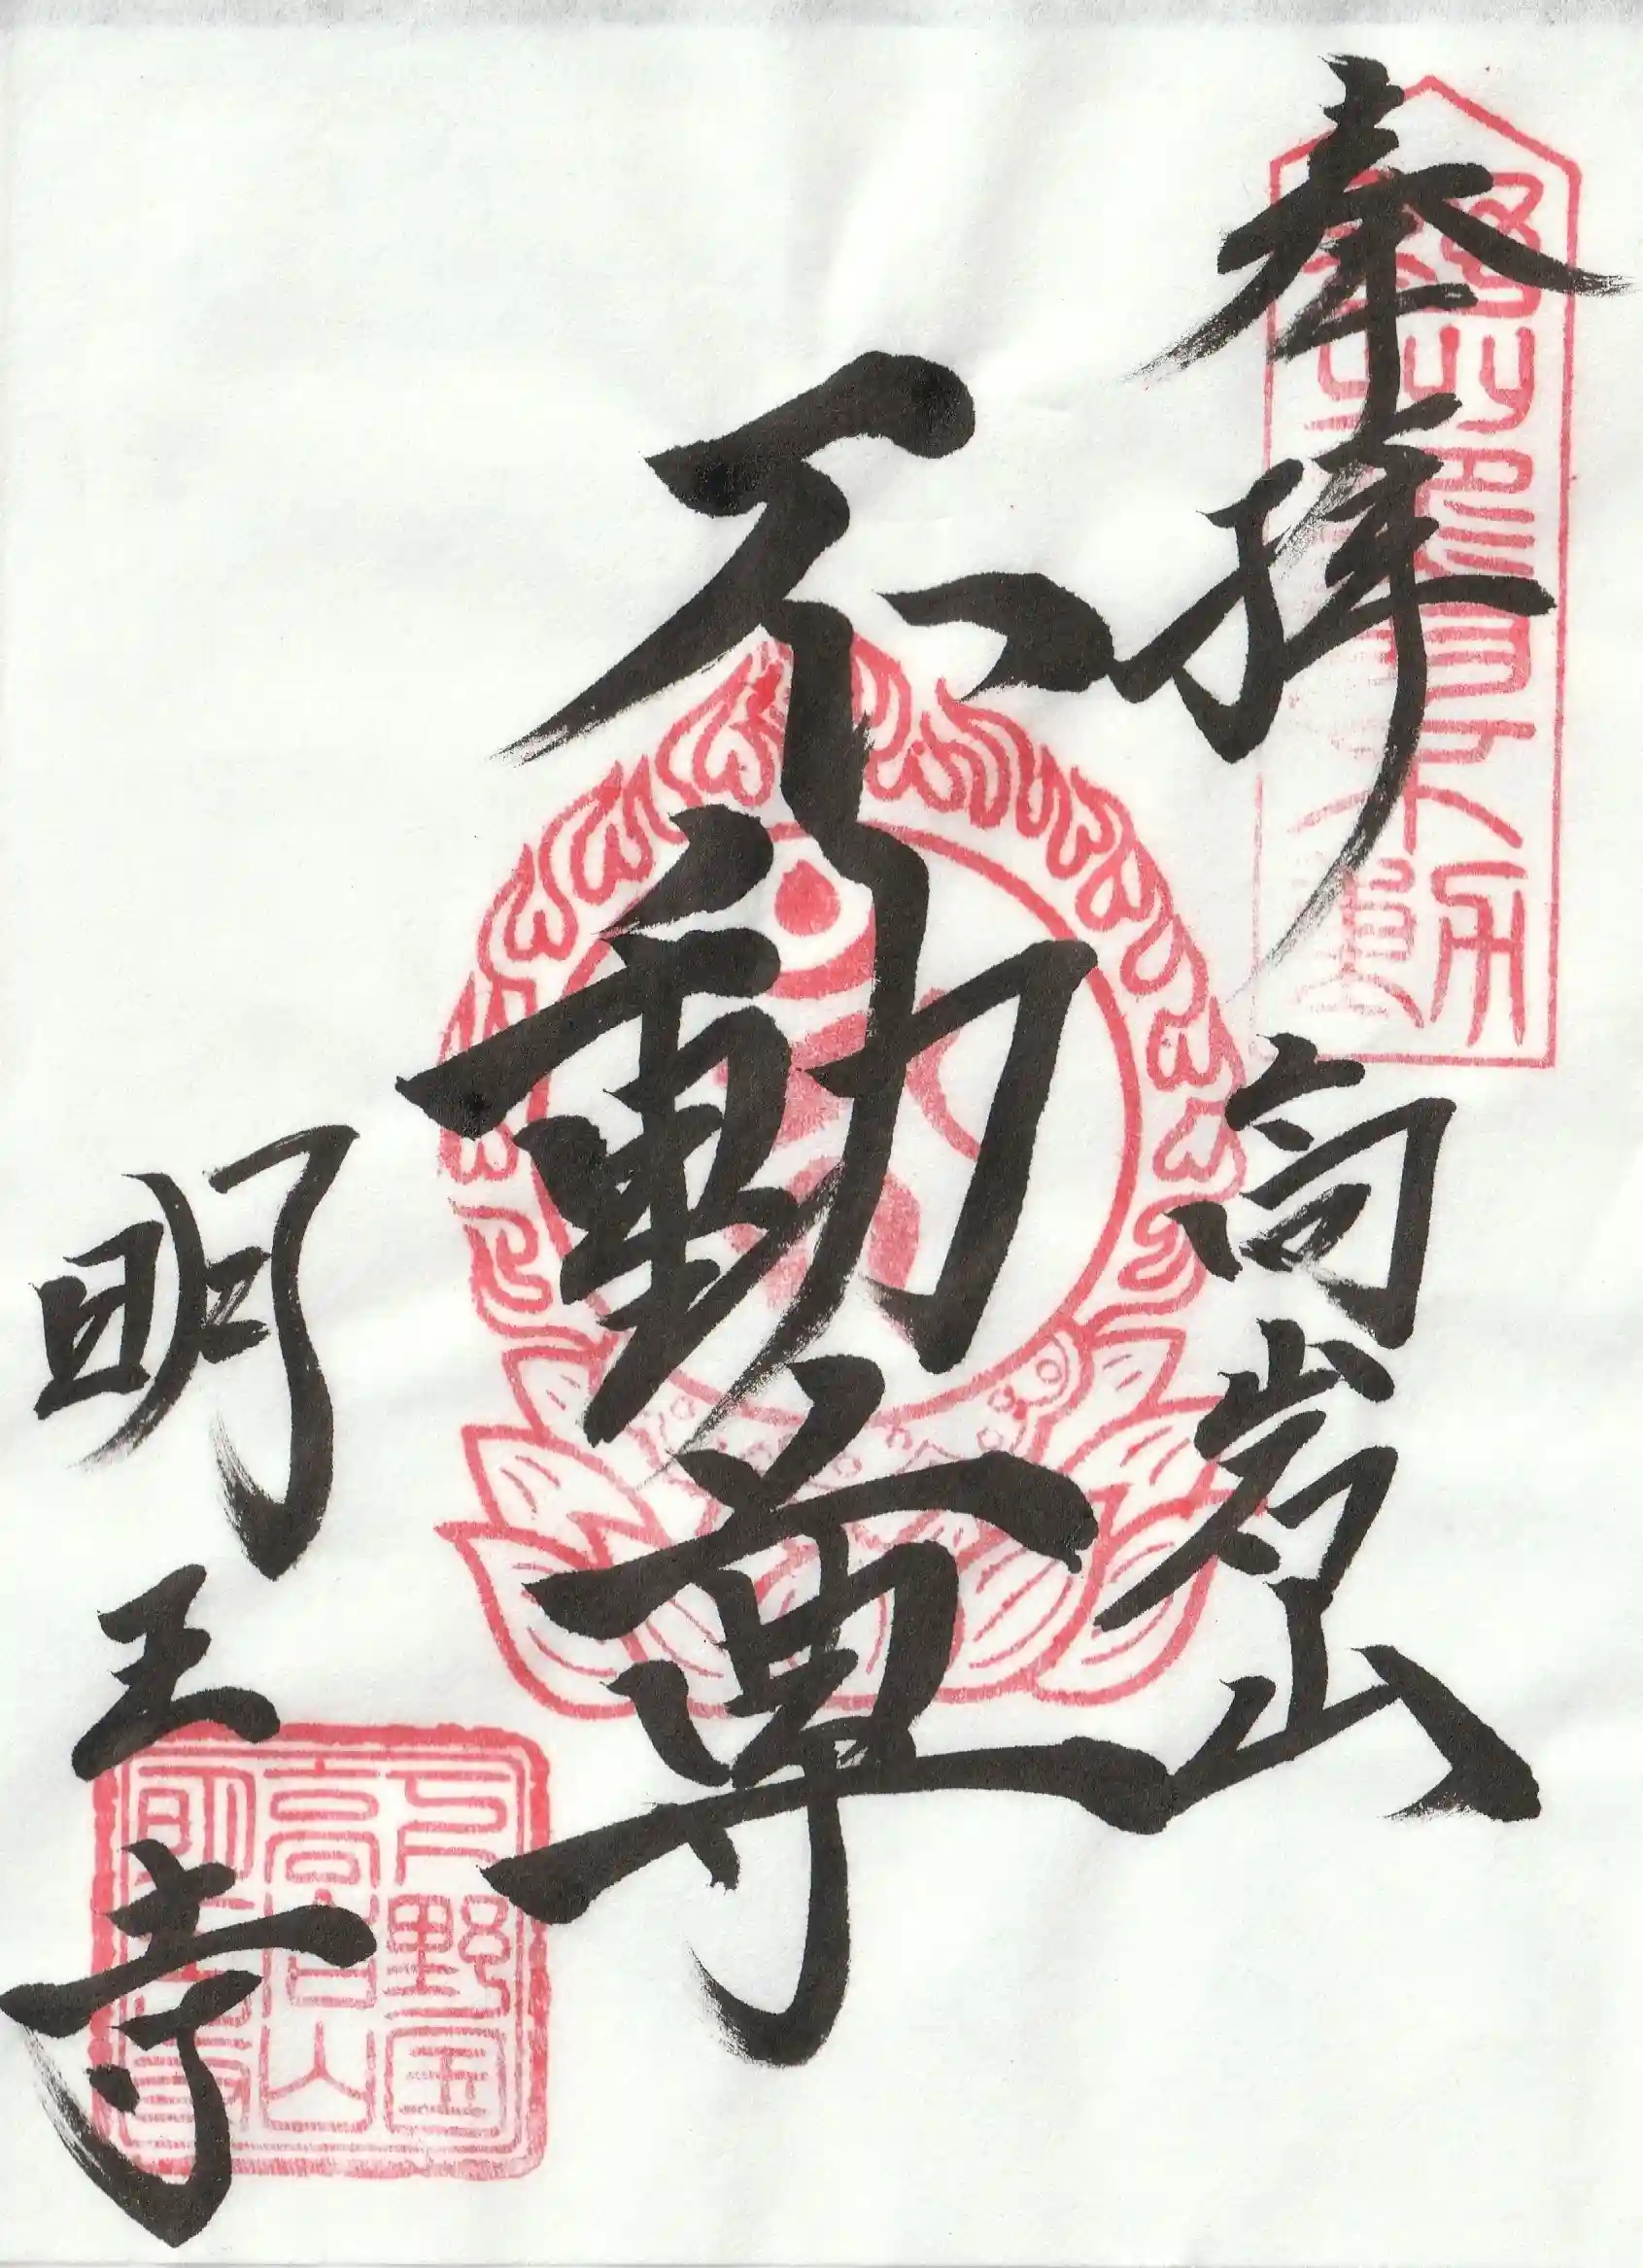 奉拝
高岩山
不動尊
明王寺
上野国
高岩山
明王寺